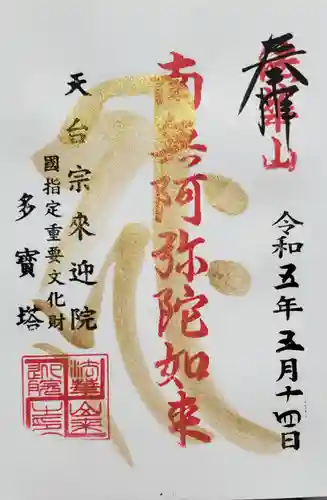 奉拝
令和五年五月十四日
南無阿弥陀如來
天台宗來迎院
國指定重要文化財
多寶塔